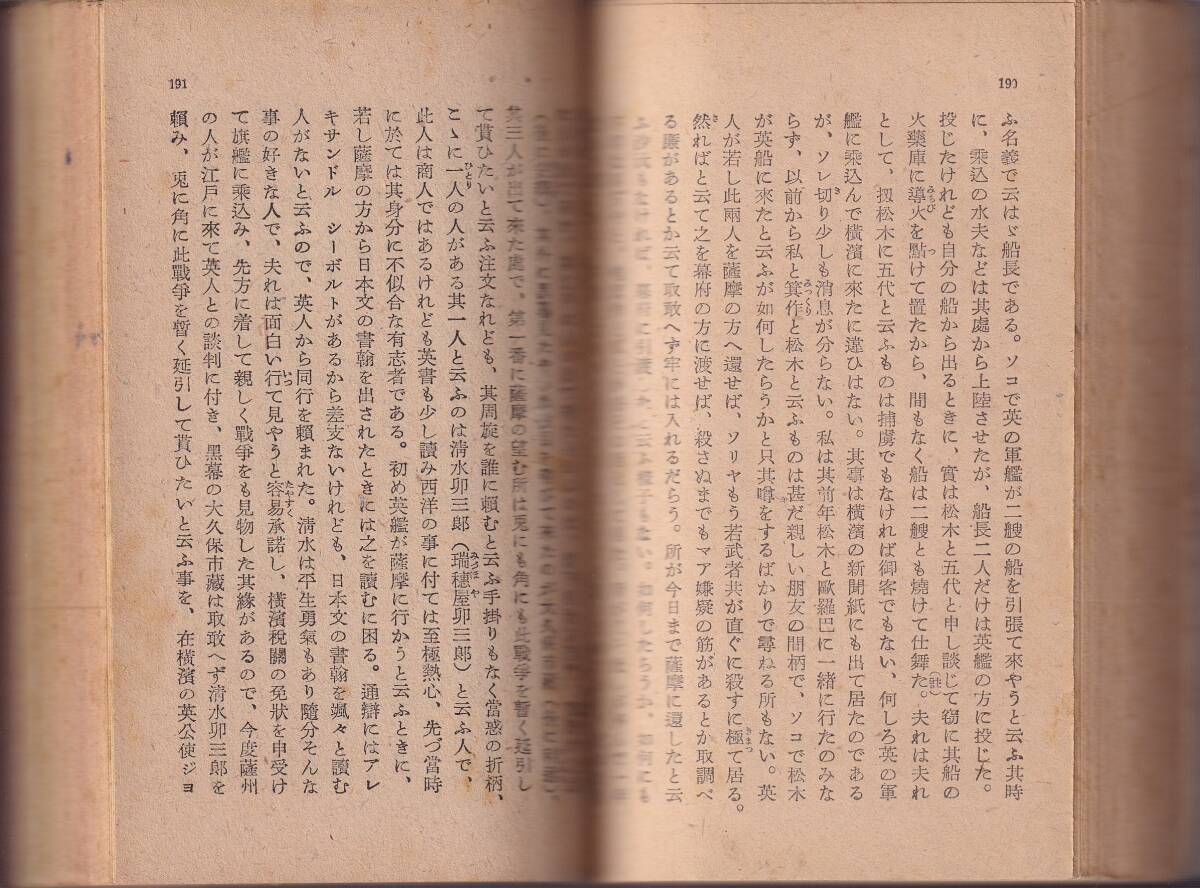 190
ふ名義で云はゞ船長である。ソコで英の軍艦が二艘の船を引張て來やうと云ふ其時
に、乘込の水夫などは其處から上陸させたが、船長二人だけは英艦の方に投じた。
投じたけれども自分の船から出るときに、實は松木と五代と申し談じて窃に其船の
火藥庫に導火を點けて置たから、間もなく船は二艘とも燒けて仕舞た。(註)夫れは夫れ
として、扨松木に五代と云ふものは捕虜でもなければ御客でもない、何しろ英の軍
艦に乘込んで橫濱に來たに違ひはない。其事は橫濱の新聞紙にも出て居たのである
が、ソレ切り少しも消息が分らない。私は其前年松木と歐羅巴に一緒に行たのみな
らず、以前から私と箕作と松木と云ふものは甚だ親しい朋友の間柄で、ソコで松木
が英船に來たと云ふが如何したらうかと只其噂をするばかりで尋ねる所もない。英
人が若し此兩人を薩摩の方へ還せば、ソリヤもう若武者共が直ぐに殺すに極て居る。
然ればと云て之を幕府の方に渡せば、殺さぬまでもマア嫌疑の筋があるとか取調べ
る廉があるとか云て取敢へず牢には入れるだらう。所が今日まで薩摩に還したと云
191
其三人が出て來た處で、第一番に薩摩の望む所は兎にも角にも此戰爭を暫く延引し
て貰ひたいと云ふ注文なれども、其周旋を誰に賴むと云ふ手掛りもなく當惑の折柄、
こゝに一人の人がある其一人と云ふのは淸水卯三郎(瑞穗屋卯三郎)と云ふ人で、
此人は商人ではあるけれども英書も少し讀み西洋の事に付ては至極熱心、先づ當時
に於ては其身分に不似合な有志者である。初め英艦が薩摩に行かうと云ふときに、
若し薩摩の方から日本文の書翰を出されたときには之を讀むに困る。通辯にはアレ
キサンドル シーボルトがあるから差支ないけれども、日本文の書翰を颯々と讀む
人がないと云ふので、英人から同行を賴まれた。淸水は平生勇氣もあり隨分そんな
事の好きな人で、夫れは面白い行て見やうと容易承諾し、橫濱稅關の免狀を申受け
て旗艦に乘込み、先方に着して親しく戰爭をも見物した其緣があるので、今度薩州
の人が江戶に來て英人との談判に付き、黑幕の大久保市藏は取敢へず淸水卯三郎を
賴み、兎に角に此戰爭を暫く延引して貰ひたいと云ふ事を、在橫濱の英公使ジヨ